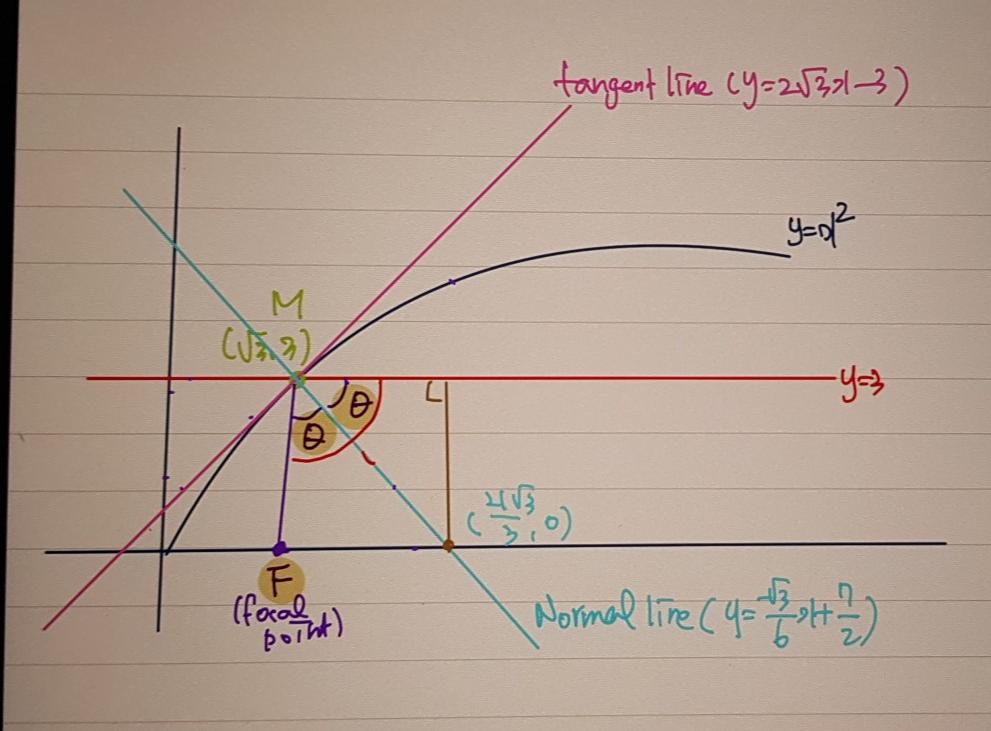 tangent line (y=2√3x-3)
y=x²
M
(√3,3)
y=3
θ
θ
(21√3/3,0)
F
(focal
point)
Normal line (y=-√3/6x+7/2)